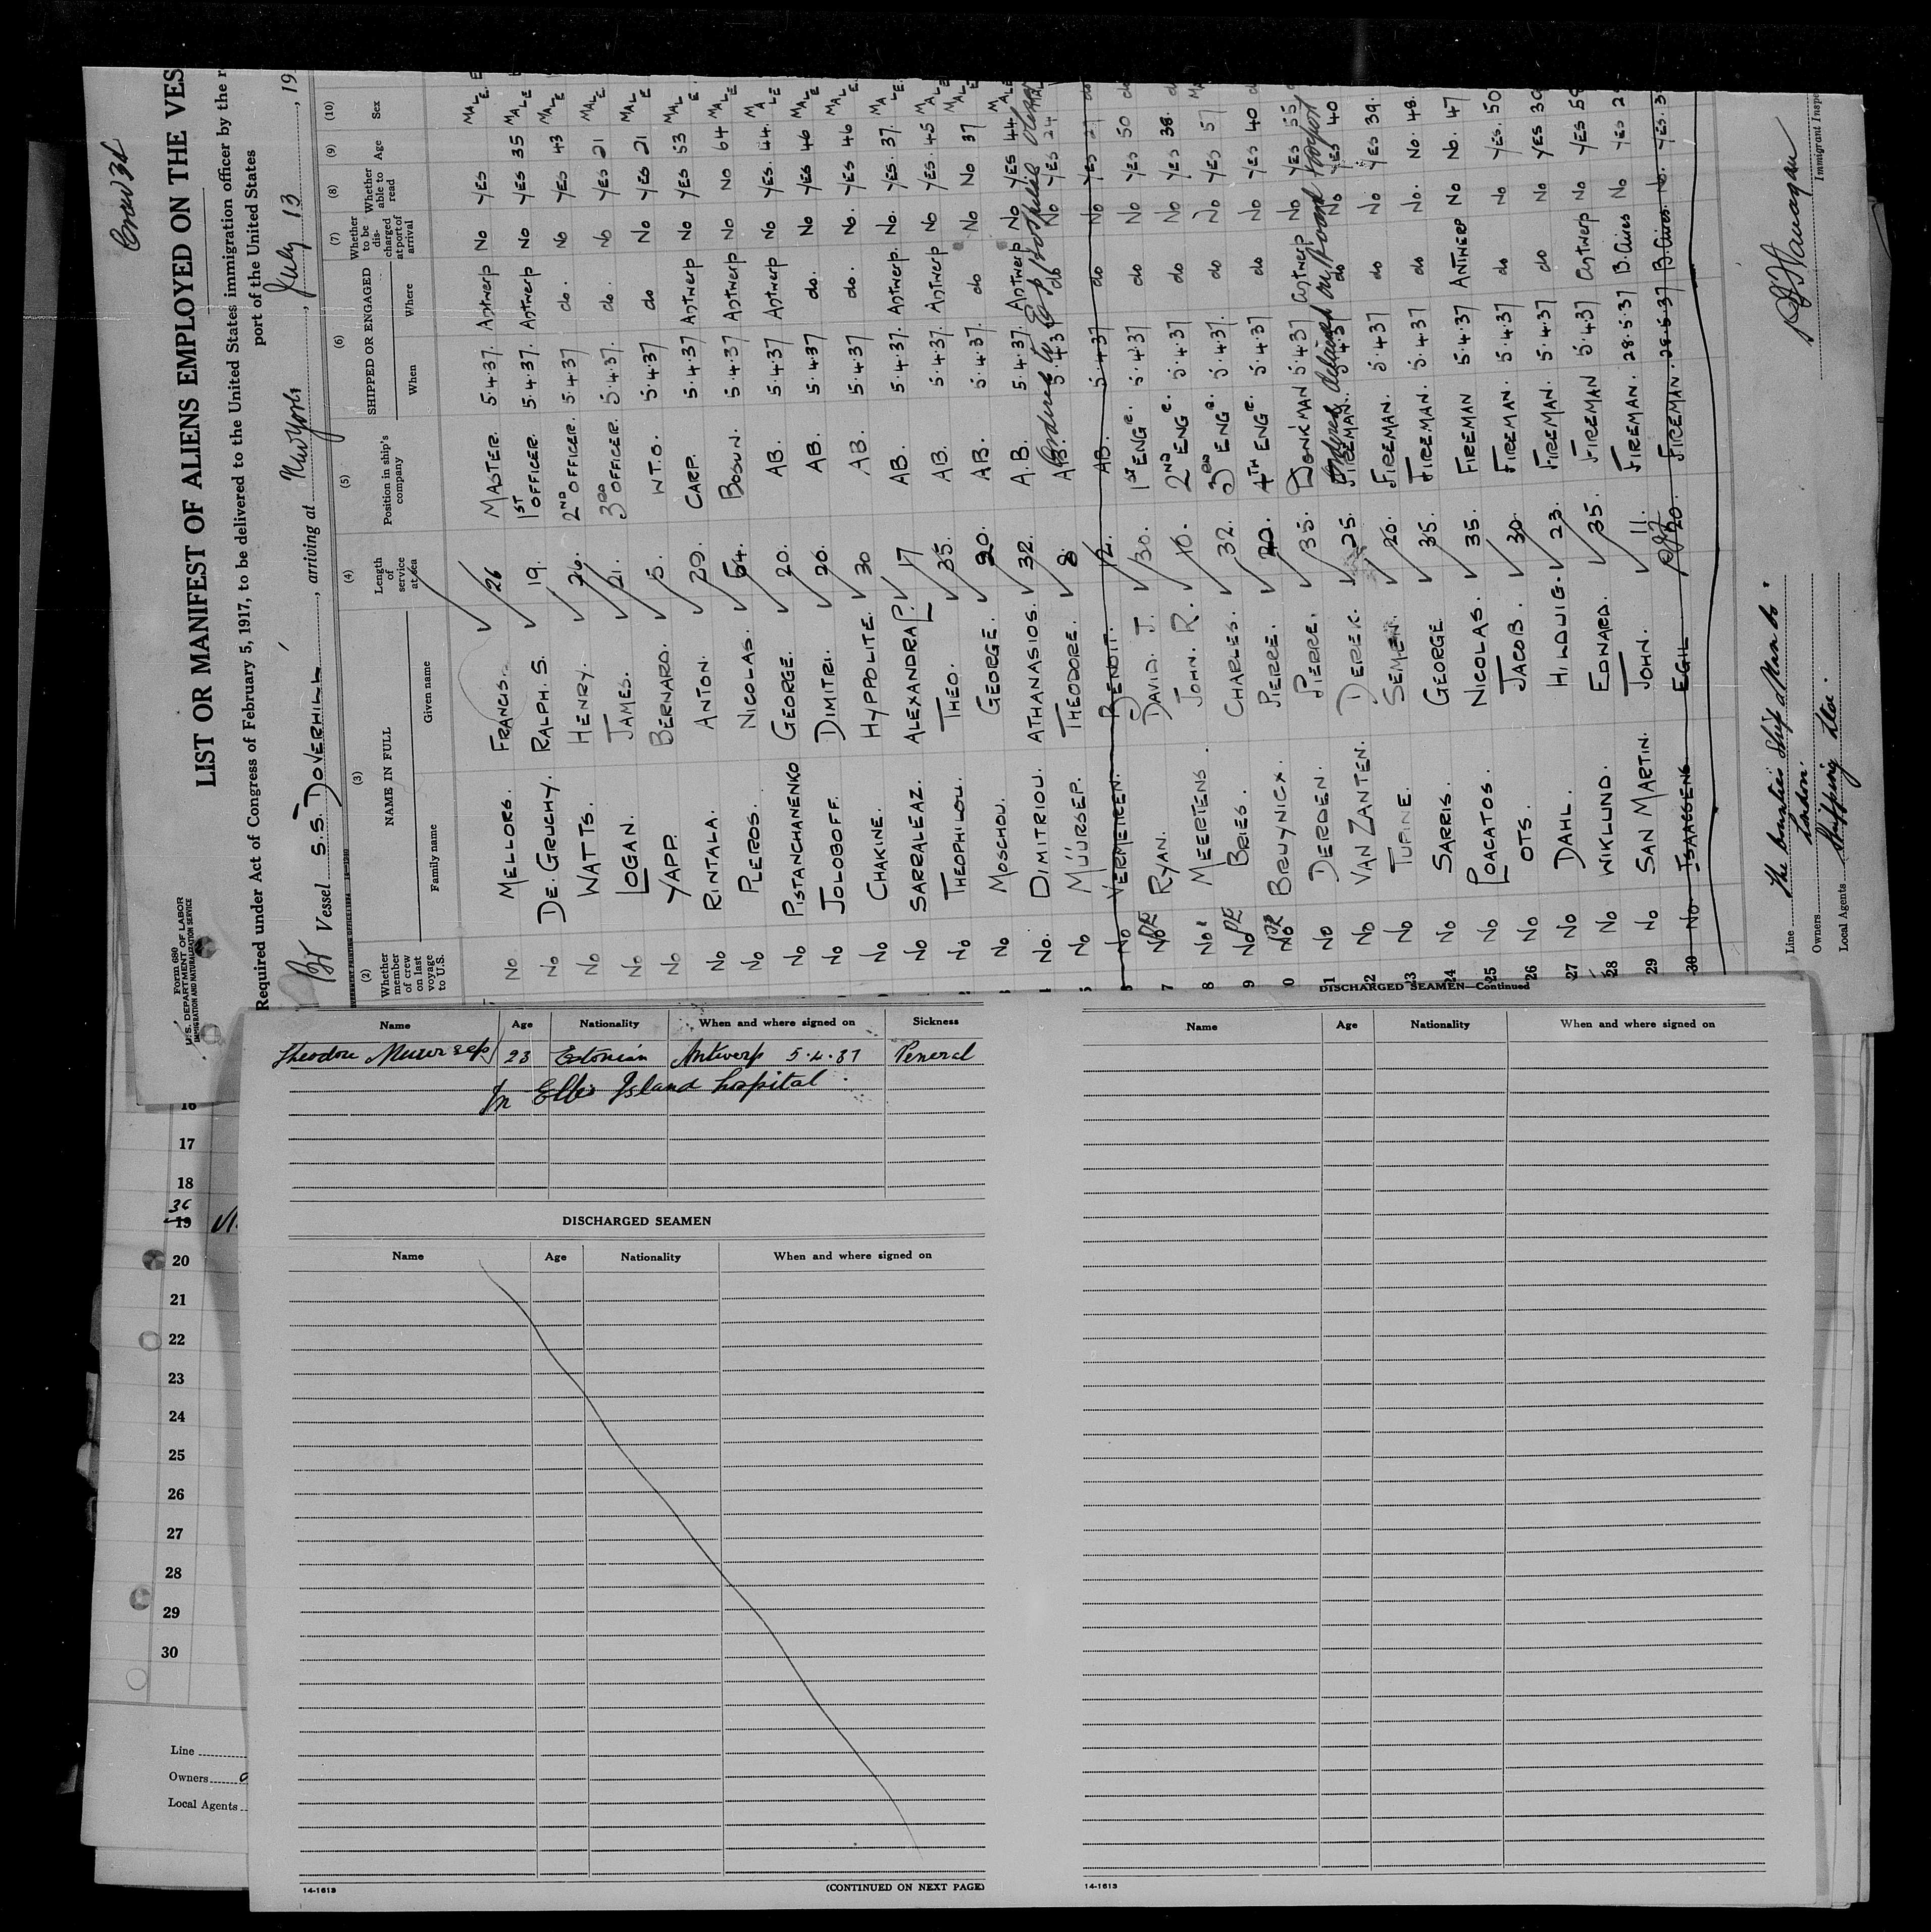 Crew 32
Form 680
U.S. DEPARTMENT OF LABOR
IMMIGRATION AND NATURALIZATION SERVICE
LIST OR MANIFEST OF ALIENS EMPLOYED ON THE VES
Required under Act of Congress of February 5, 1917, to be delivered to the United States immigration officer by the r
port of the United States
Br Vessel S.S. DOVERHILL, arriving at New York, July 13, 19
(2) (3) (4) (5) (6) (7) (8) (9) (10)
Whether member of crew on last voyage to U.S. NAME IN FULL Length of service at sea Position in ship's company SHIPPED OR ENGAGED Whether to be discharged at port of arrival Whether able to read Age Sex
Family name Given name When Where
No MELLORS. FRANCIS. 26 MASTER. 5.4.37. ANTWERP No YES MALE
No DE. GRUCHY. RALPH. S. 19. 1ST OFFICER. 5.4.37. ANTWERP No YES 35 MALE
No WATTS. HENRY. 26. 2ND OFFICER. 5.4.37 do. No YES 43 MALE
No LOGAN. JAMES. 21. 3RD OFFICER. 5.4.37. do. No YES 21 MALE
No YAPP. BERNARD. 5. W.T.O. 5.4.37 do No YES 21 MALE
No RINTALA. ANTON. 29. CARP. 5.4.37 ANTWERP No YES 53 MALE
No PLEROS. NICOLAS. 54. BOSUN. 5.4.37 ANTWERP No No 64 MALE
No PISTANCHANENKO GEORGE. 20. AB. 5.4.37 ANTWERP No YES. 44. MALE
No JOLOBOFF. DIMITRI. 20. AB. 5.4.37 do. No YES 46 MALE
No CHAKINE. HYPPOLITE. 30 AB. 5.4.37 do. No. YES 46 MALE
No SARRALEAZ. ALEXANDRA P. 17 AB. 5.4.37. ANTWERP. No. YES. 37. MALE
No THEOPHILOU. THEO. 35. AB. 5.4.37. ANTWERP No YES. 45 MALE
No MOSCHOU. GEORGE. 20. AB. 5.4.37. do No No 37 MALE
No. DIMITRIOU. ATHANASIOS. 32. A.B. 5.4.37. ANTWERP No YES 44. MALE
No MÜÜRSEP. THEODORE. 8. AB. 5.4.37 do No YES 24
No VERMEIREN. BENOIT. 12. AB. 5.4.37 do No YES 27 do
17 No RYAN. DAVID. J. 30. 1ST ENGR. 5.4.37 do No YES 50 do
18 No MEERTENS. JOHN. R. 10. 2ND ENGR. 5.4.37 do No YES 38.
19 No BRIES. CHARLES. 32. 3RD ENGR. 5.4.37. do No YES 57
20 No BRUYNICX. PIERRE. 20. 4TH ENGR. 5.4.37 do No YES 40
21 No DERDEN. PIERRE. 35. DONK'MAN 5.4.37 ANTWERP No YES 55
22 No VAN ZANTEN. DEREK. 25. FIREMAN. 5.4.37 do No YES 40
23 No TUPINE. SEMEN. 20. FIREMAN. 5.4.37 do No YES 39.
24 No SARRIS. GEORGE 35. FIREMAN. 5.4.37 do No. No. 48.
25 No LOACATOS. NICOLAS. 35. FIREMAN 5.4.37 ANTWERP No No. 47
26 No OTS. JACOB. 30. FIREMAN. 5.4.37 do No YES. 50
27 No DAHL. HILDUIG. 23. FIREMAN. 5.4.37 do No YES 30
28 No WIKLUND. EDWARD. 35. FIREMAN 5.4.37 Antwerp No YES
29 No SAN MARTIN. JOHN. 11. FIREMAN. 28.5.37 B. Aires No YES
30 No. ISAACSENS EGIL 20. FIREMAN. 28.5.37 B. Aires. No. YES.
Line The Counties Ship Man Co.
Owners London.
Local Agents Shipping
Immigrant Inspe
Name Age Nationality When and where signed on Sickness
Theodore Muursep 23 Estonian Antwerp 5.4.37 Veneral
In Ellis Island hospital.
DISCHARGED SEAMEN
Name Age Nationality When and where signed on
14-1613 (CONTINUED ON NEXT PAGE)
DISCHARGED SEAMEN—Continued
Name Age Nationality When and where signed on
14-1613
16
17
18
36
19
20
21
22
23
24
25
26
27
28
29
30
Line
Owners
Local Agents